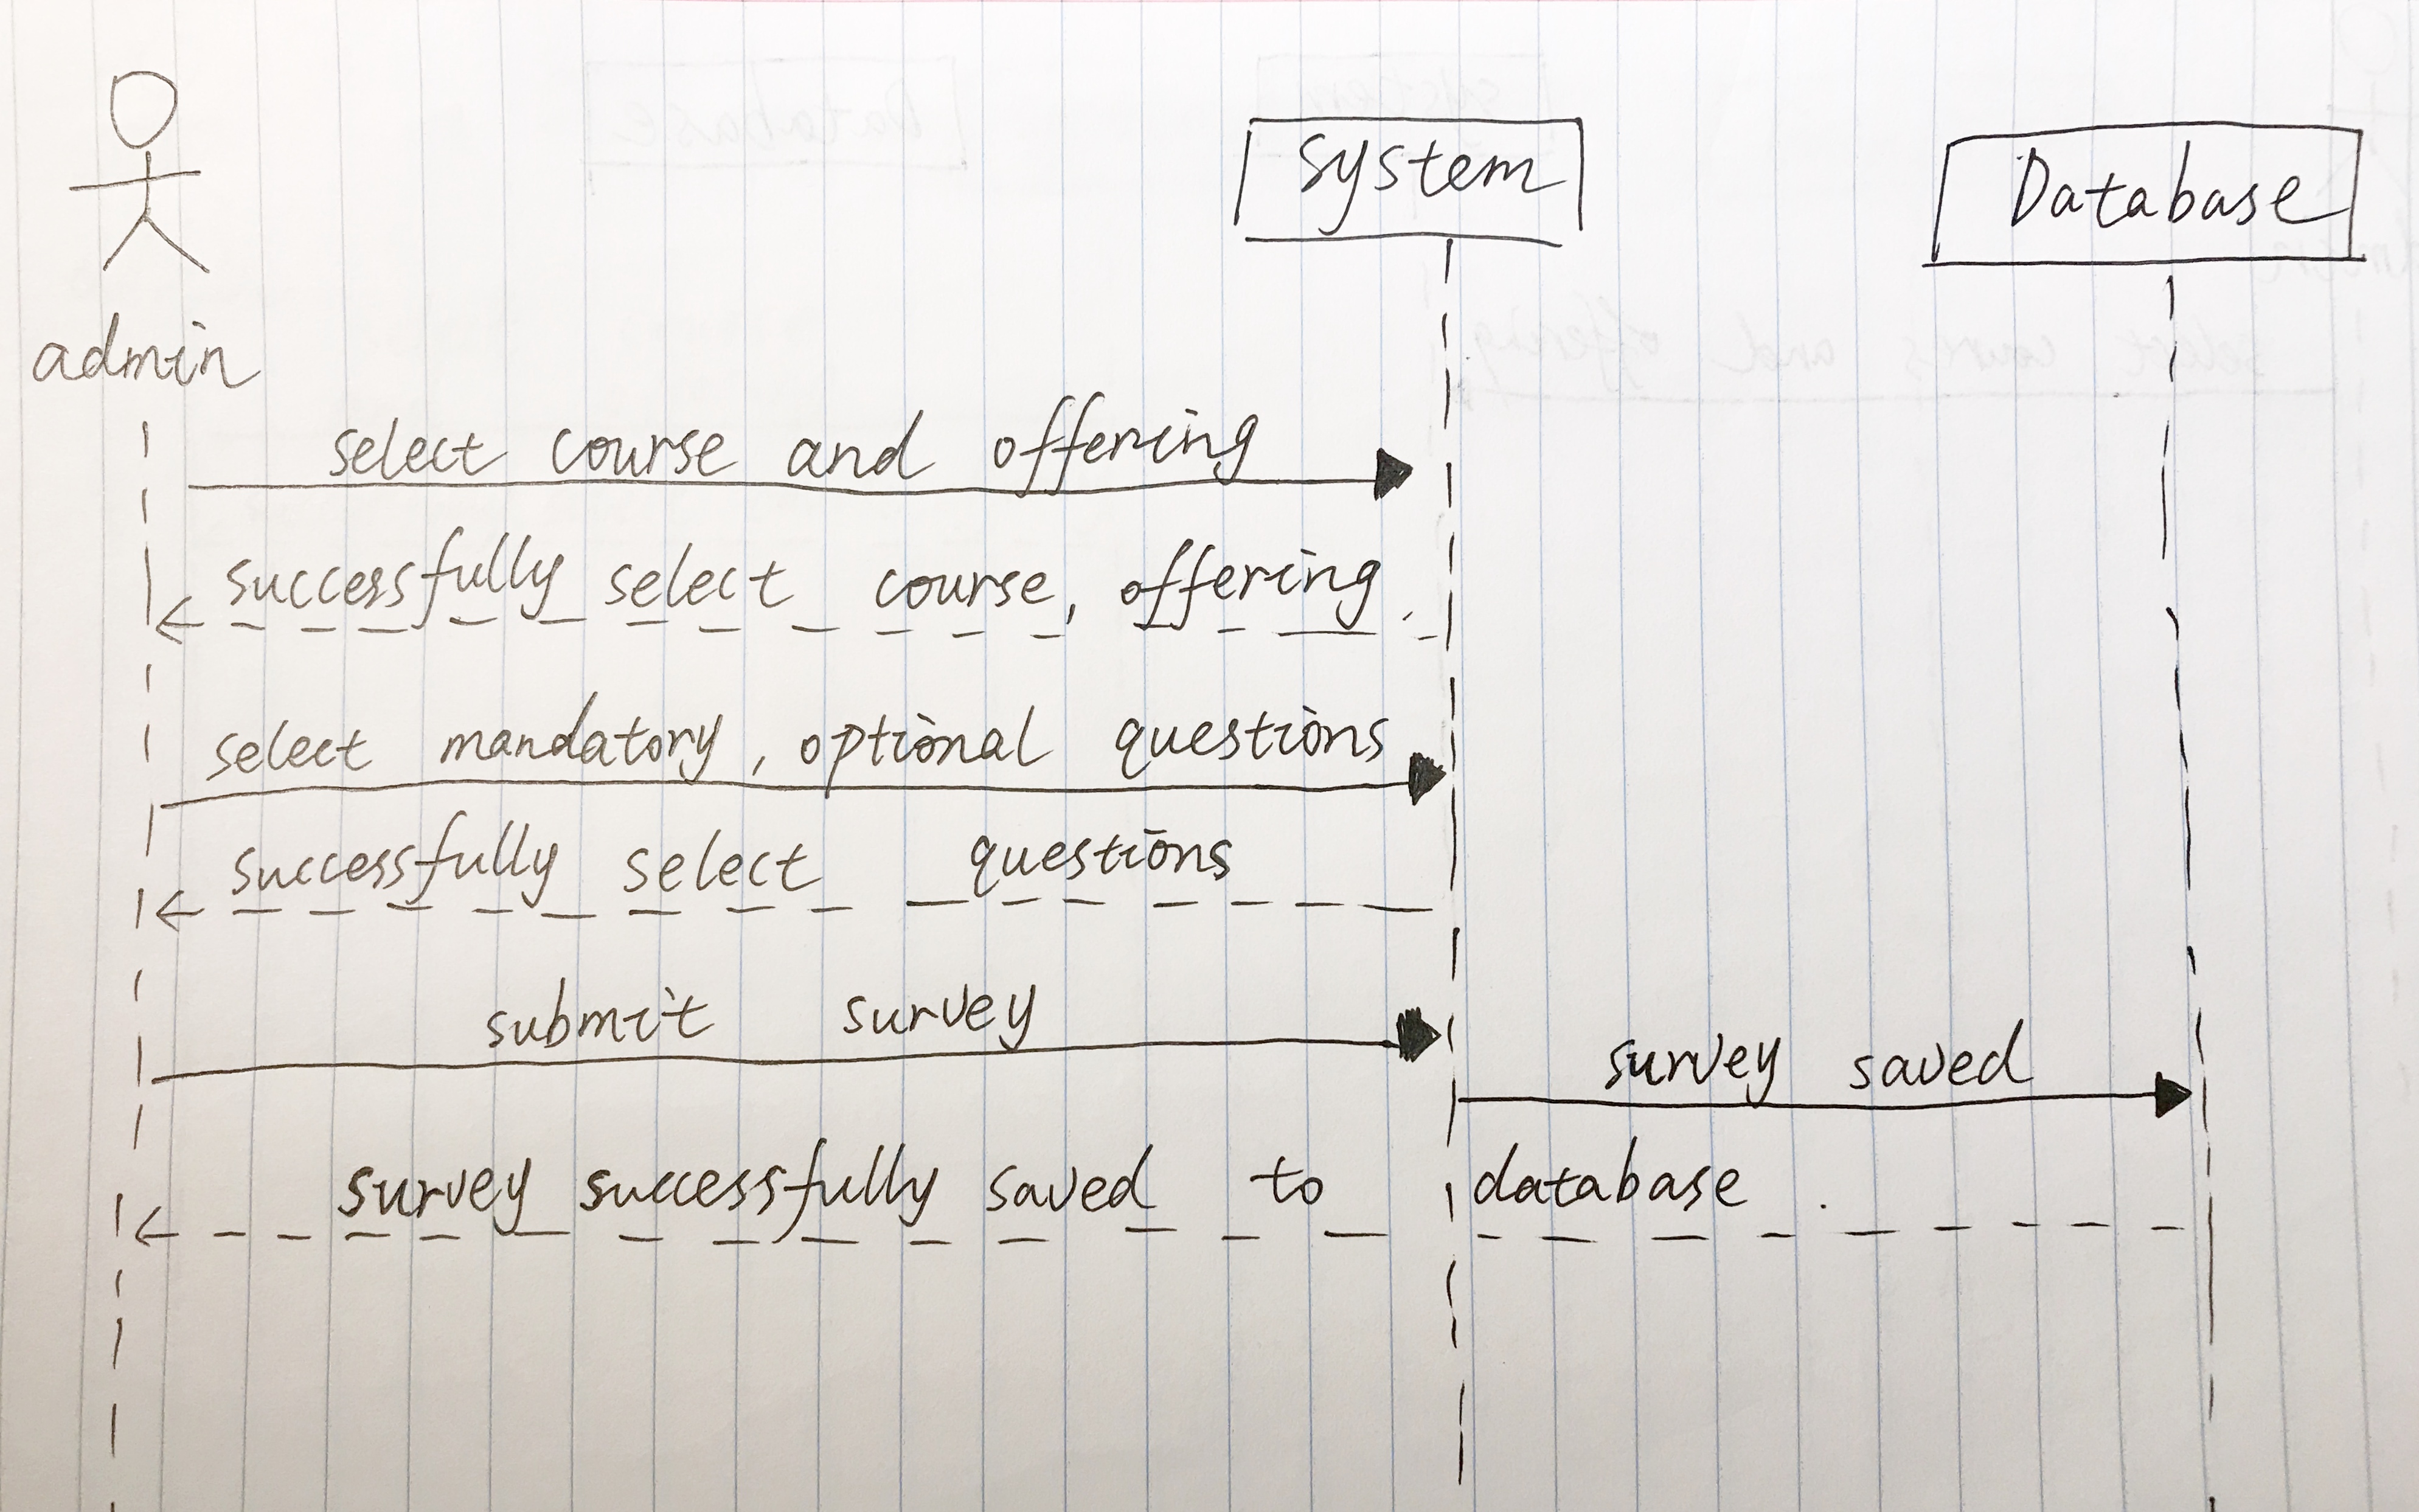 system
Database
admin
select course and offering
successfully select course, offering.
select mandatory, optional questions
successfully select questions
submit survey
survey saved
survey successfully saved to database.